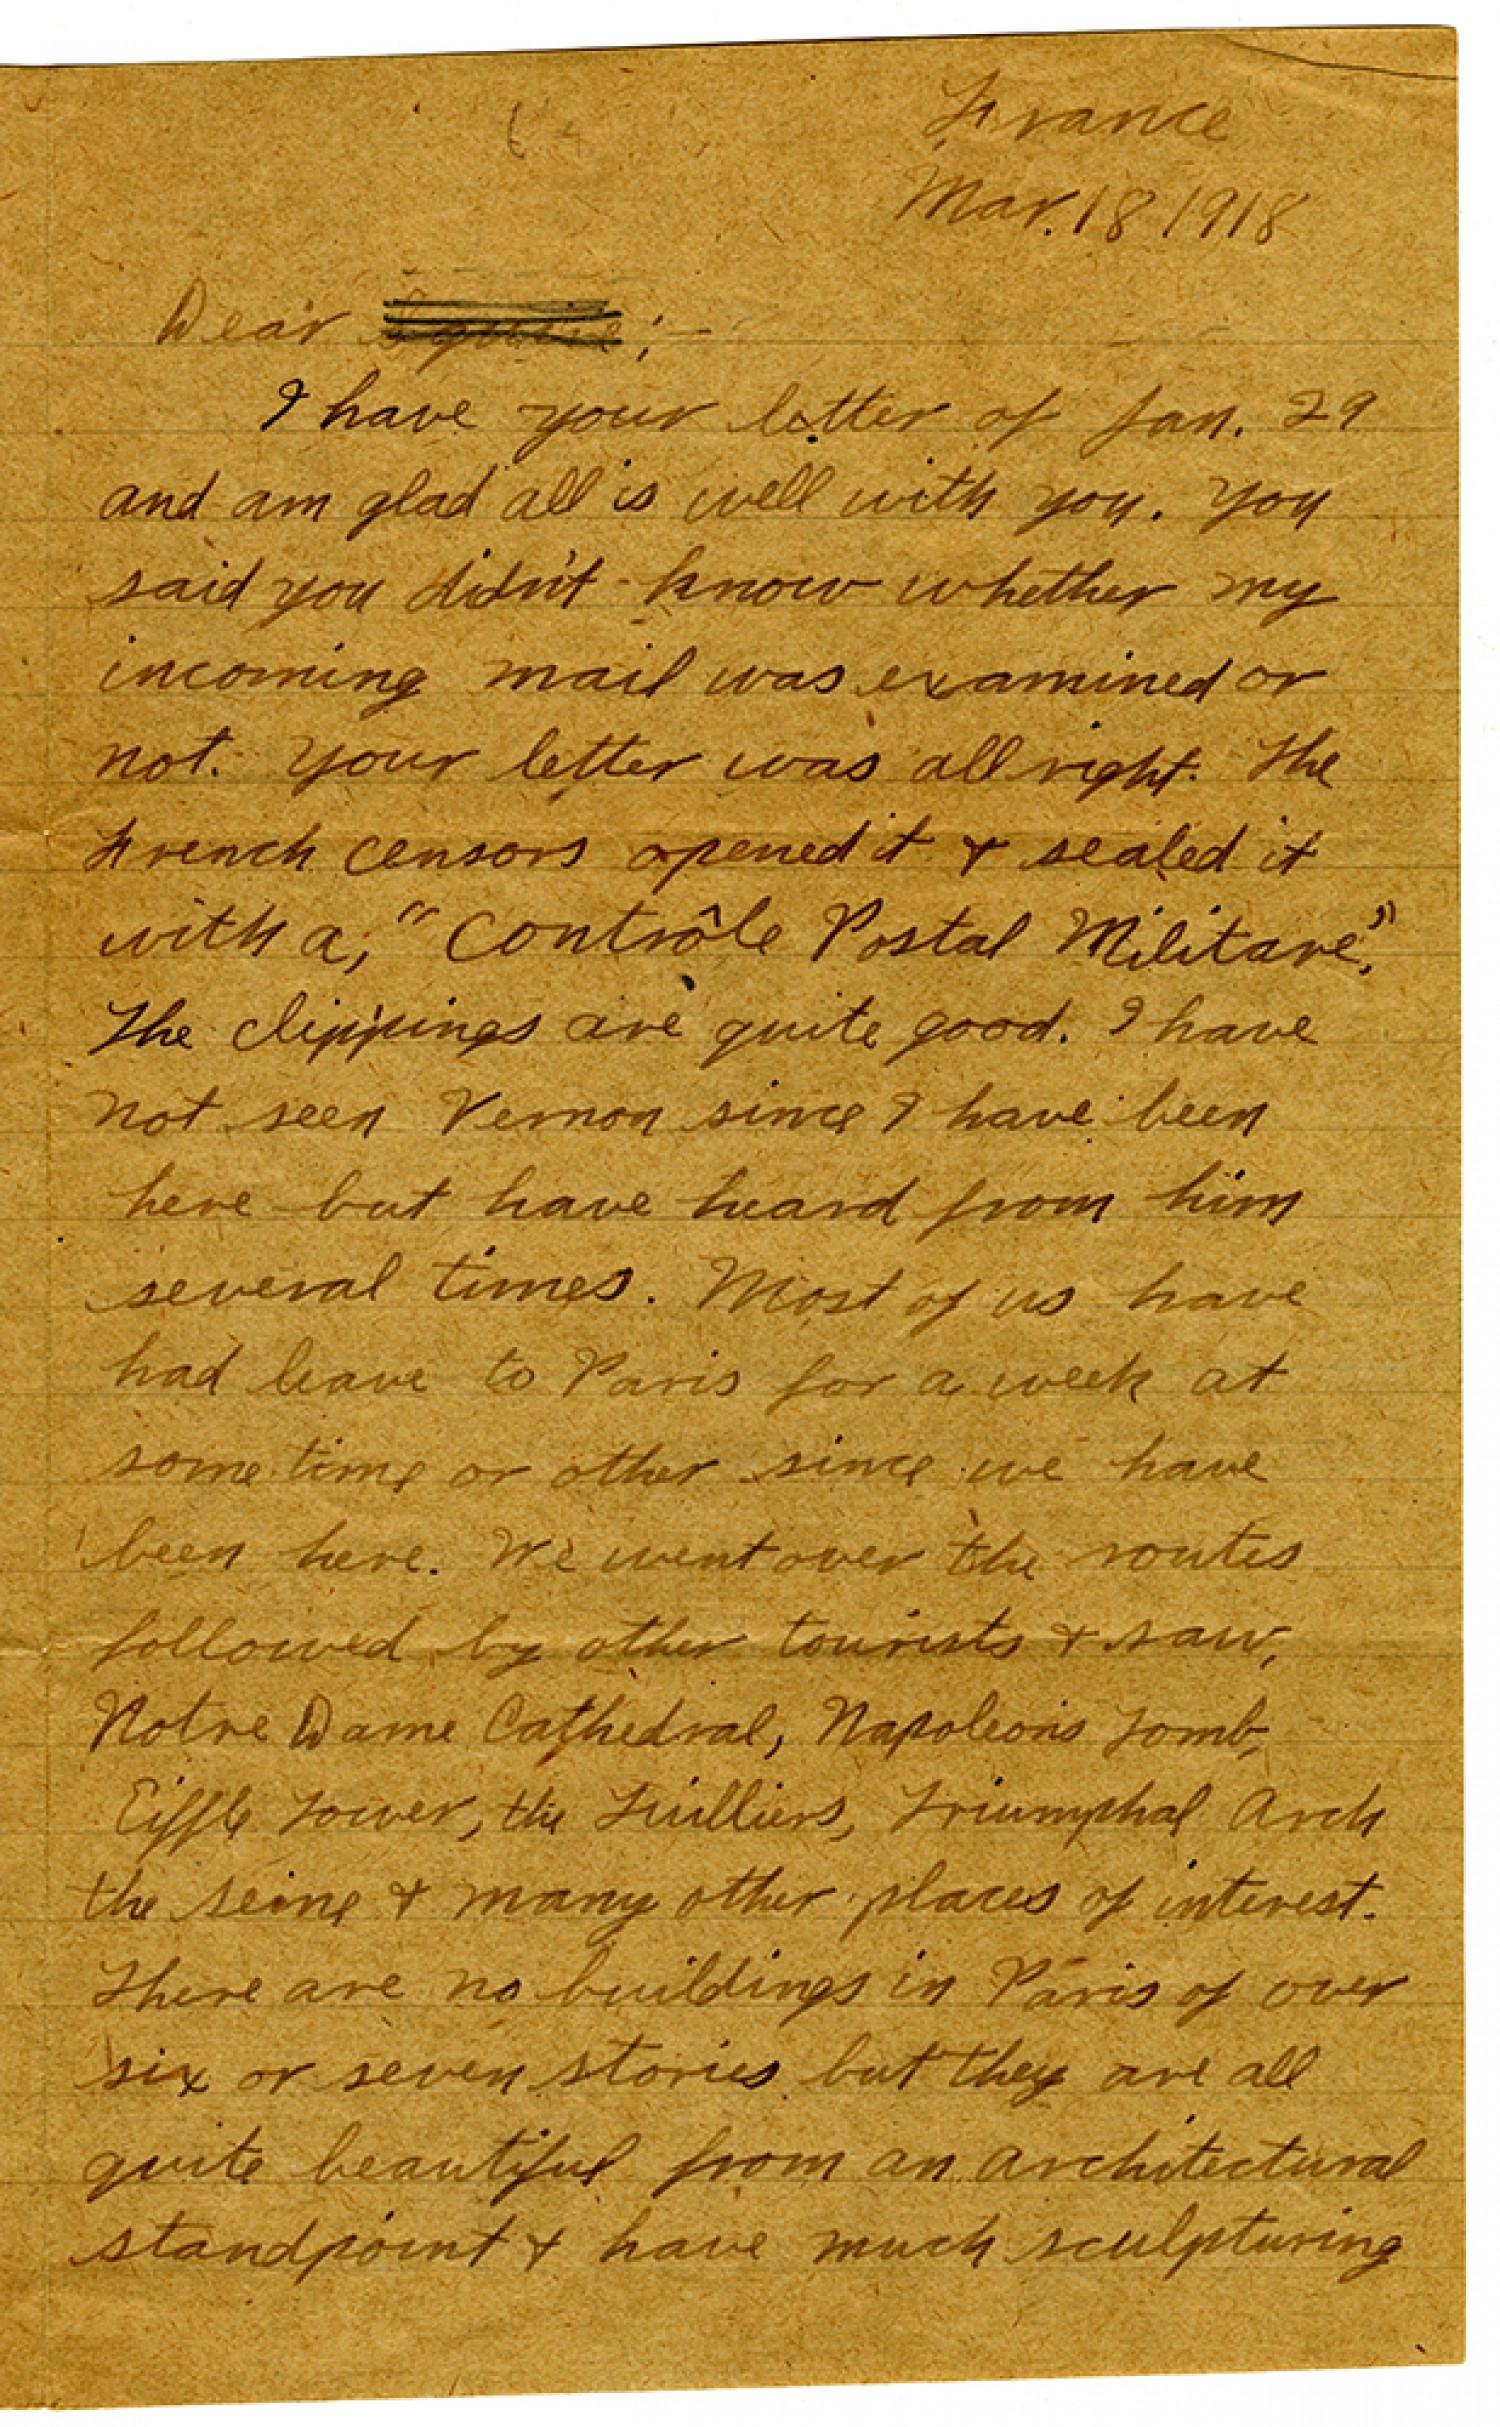 France
Mar. 18 1918
Dear ;—
I have your letter of Jan. 29
and am glad all is well with you. You
said you didn't know whether my
incoming mail was examined or
not. Your letter was all right. The
French censors opened it & sealed it
with a, "Contrôle Postal Militare".
The clippings are quite good. I have
not seen Vernon since I have been
here but have heard from him
several times. Most of us have
had leave to Paris for a week at
some time or other since we have
been here. We went over the routes
followed by other tourists & saw,
Notre Dame Cathedral, Napoleon's Tomb,
Eiffle Tower, the Tuilliers, Triumphal Arch
the Seine & many other places of interest.
There are no buildings in Paris of over
six or seven stories but they are all
quite beautiful from an architectural
standpoint & have much sculpturing